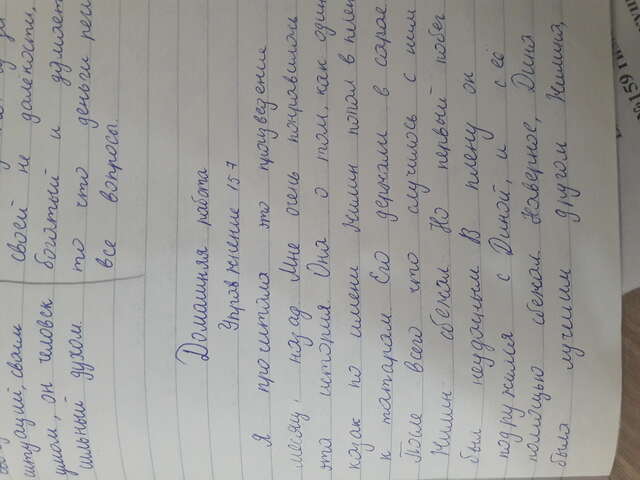 ситуаций, своим
умом, он человек
сильный духом.
своей не далёкости,
богатый и думает
то что деньги реш
все вопросы.
Домашняя работа
Упражнение 157
Я прочитала это произведение
месяц назад. Мне очень понравилась
эта история. Она о том, как один
козак по имени Жилин попал в плен
к татарам. Его держали в сарае
После всего что случилось с ним
Жилин сбежал. Но первый побег
был неудачным. В плену он
подружился с Диной, и с её
помощью сбежал. Наверное, Дина
была лучшим другом Жилина,
№159